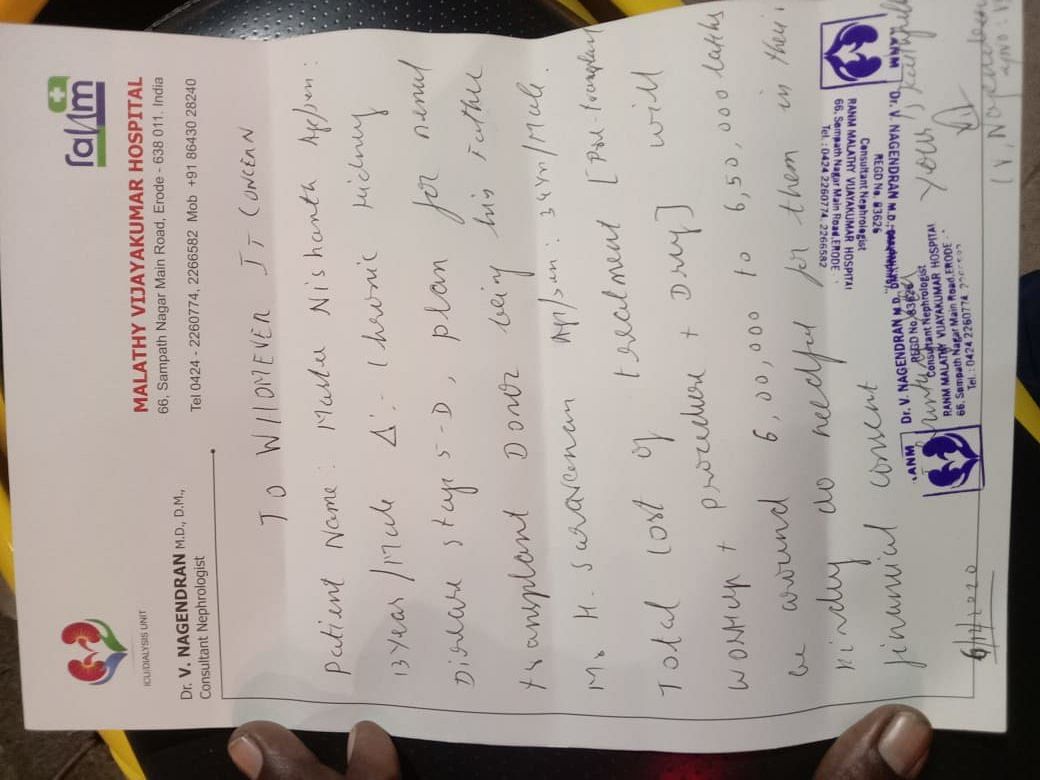 ranm
MALATHY VIJAYAKUMAR HOSPITAL
66, Sampath Nagar Main Road, Erode - 638 011. India
Tel 0424 - 2260774, 2266582 Mob +91 86430 28240
ICU/DIALYSIS UNIT
Dr. V. NAGENDRAN M.D., D.M.,
Consultant Nephrologist
TO WHOMEVER IT CONCERN
Patient Name: Master Nishanth Age/sen:
13 year /Male Δ:- Chronic kidney
Disease stage 5-D, plan for renal
transplant Donor being his Father
Mr H. Saravanan Age/sen: 34yr/Male.
Total cost of treatment [Pre-transplant
workup + procedure + Drug] will
be around 6,00,000 to 6,50,000 lakhs
kindly do needful for them in their
financial consent
Yours
RANM
Dr. V. NAGENDRAN M.D.,
REGD No. 83626
Consultant Nephrologist
RANM MALATHY VIJAYAKUMAR HOSPITAL
66. Sampath Nagar Main Road, ERODE
Tel: 0424 2260774, 2266582
RANM
Dr. V. NAGENDRAN M.D.
REGD No. 83626
Consultant Nephrologist
RANM MALATHY VIJAYAKUMAR HOSPITAL
66. Sampath Nagar Main Road, ERODE
Tel.: 0424 2260774
(V. Nagendran